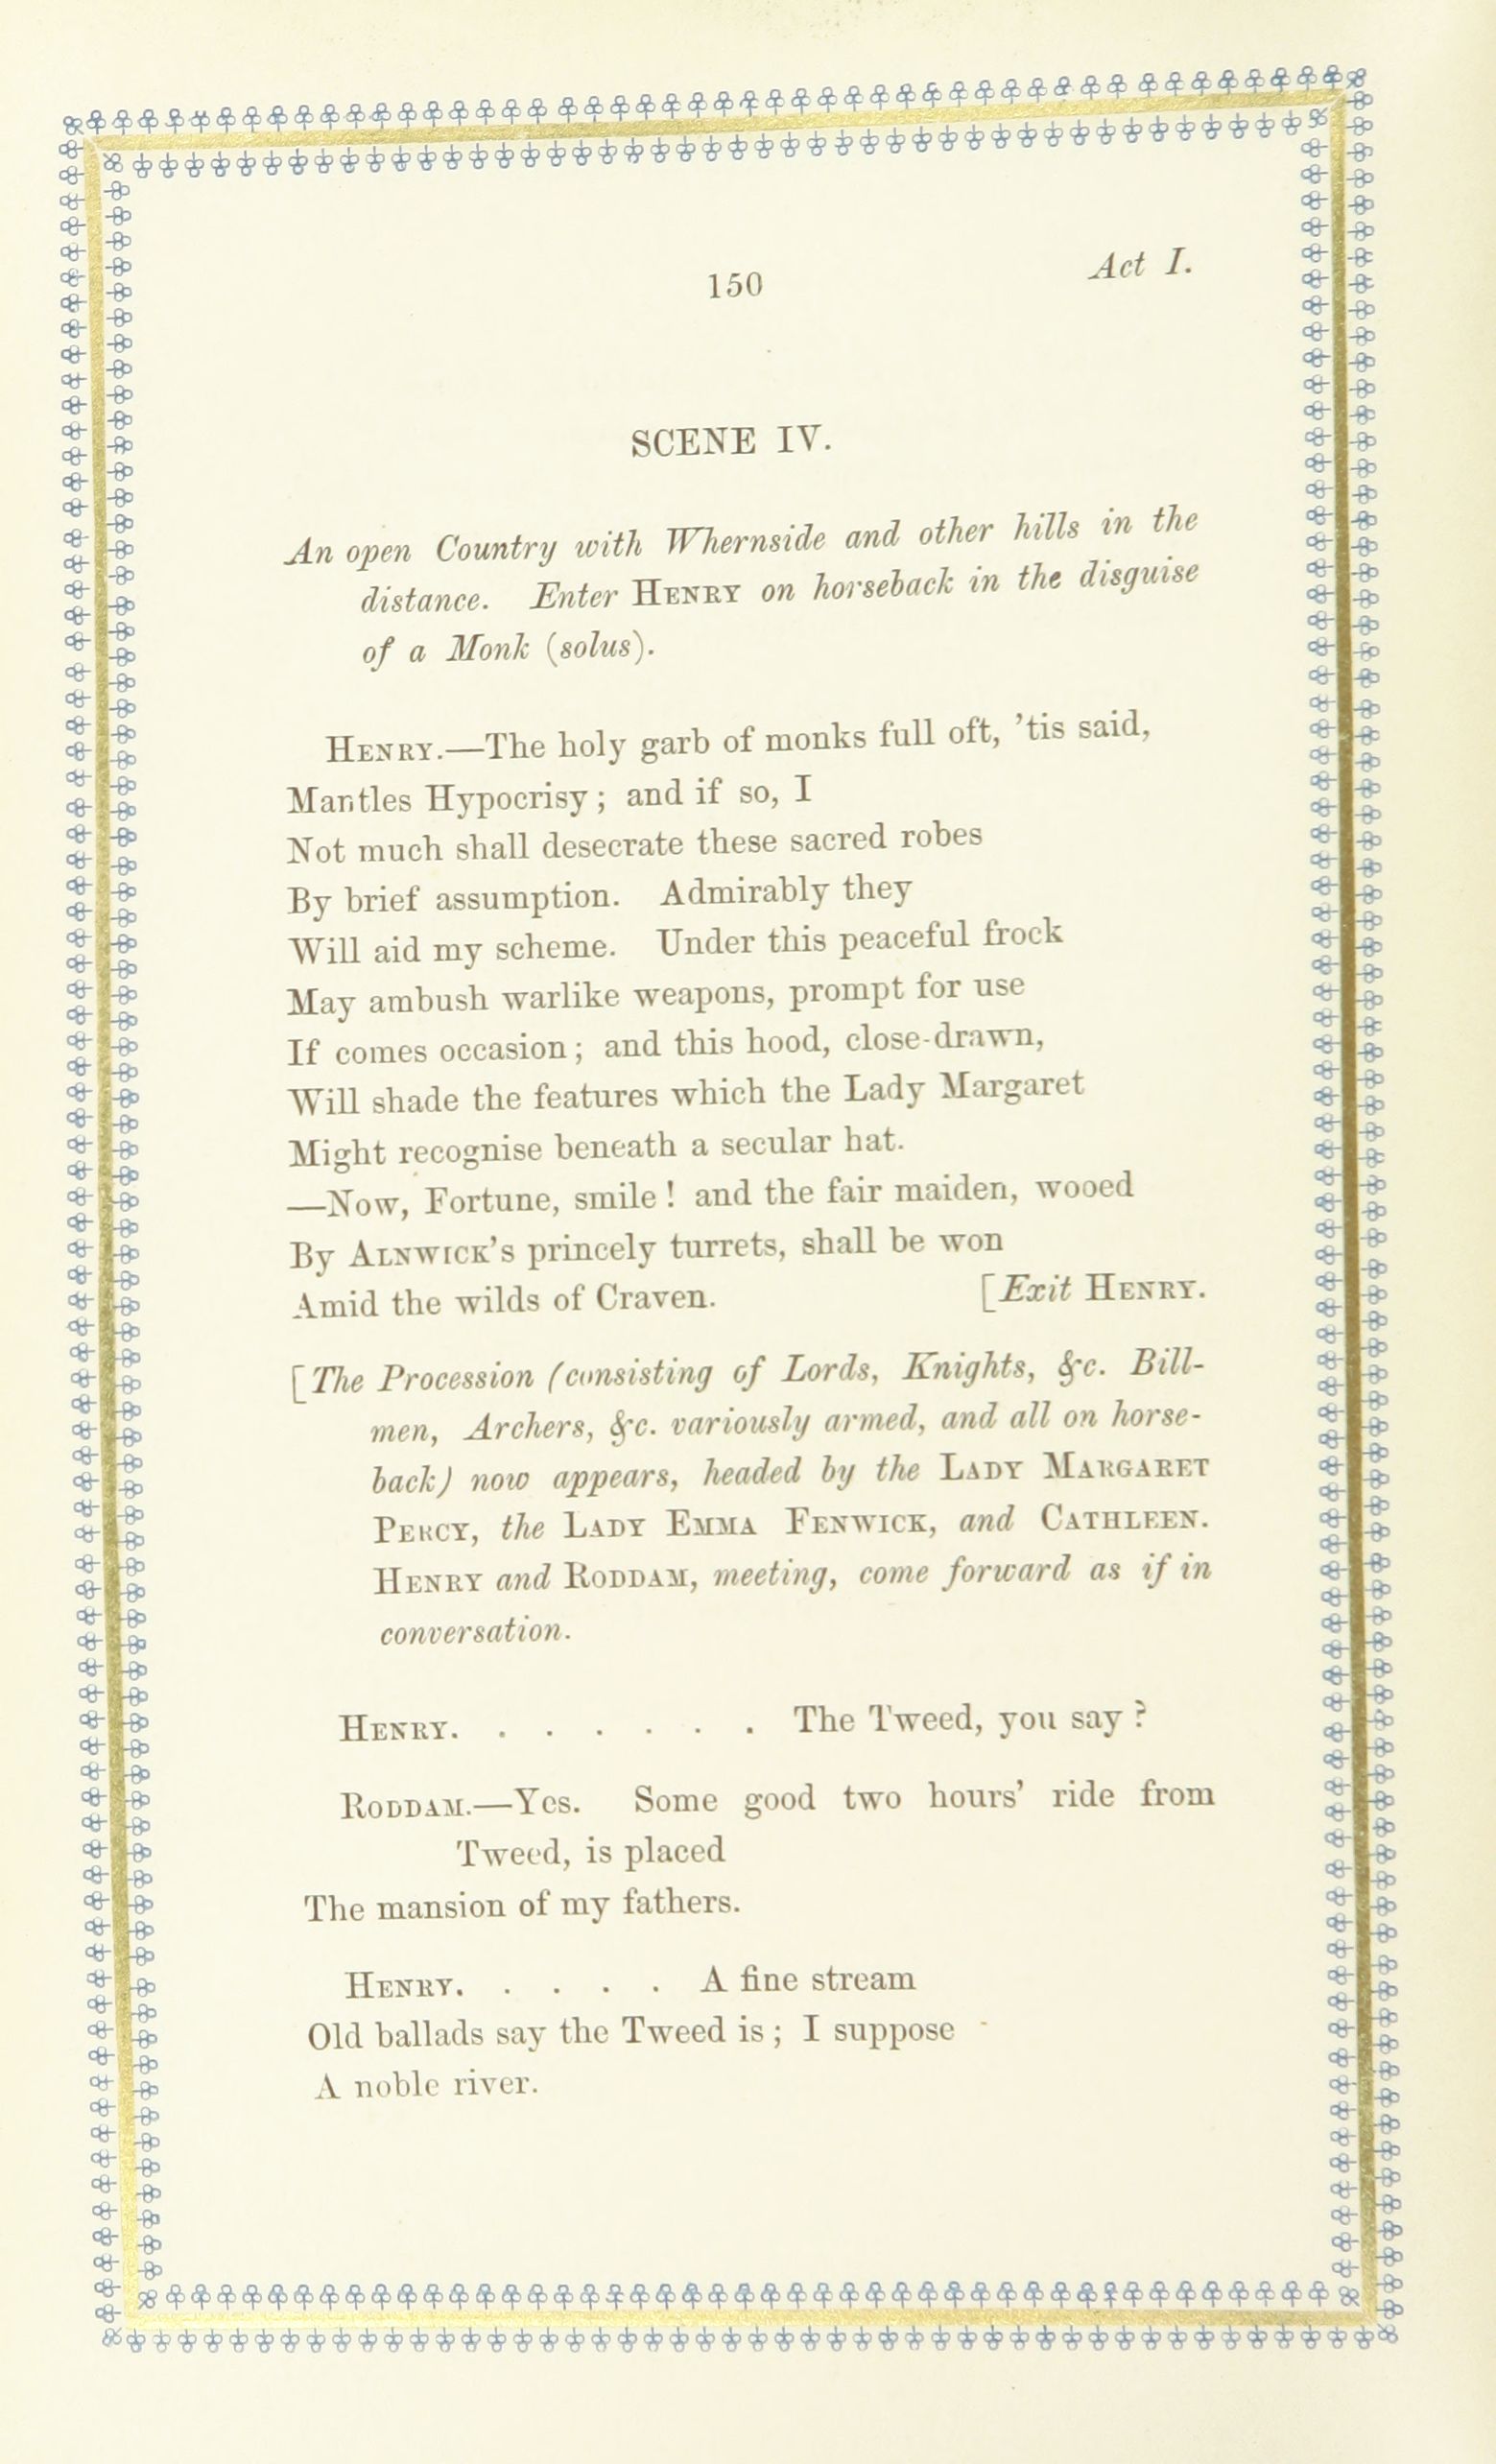 150
Act I.
SCENE IV.
An open Country with Whernside and other hills in the
distance. Enter HENRY on horseback in the disguise
of a Monk (solus).
HENRY.—The holy garb of monks full oft, ’tis said,
Mantles Hypocrisy; and if so, I
Not much shall desecrate these sacred robes
By brief assumption. Admirably they
Will aid my scheme. Under this peaceful frock
May ambush warlike weapons, prompt for use
If comes occasion; and this hood, close-drawn,
Will shade the features which the Lady Margaret
Might recognise beneath a secular hat.
—Now, Fortune, smile! and the fair maiden, wooed
By ALNWICK’S princely turrets, shall be won
Amid the wilds of Craven. [Exit HENRY.
[The Procession (consisting of Lords, Knights, &c. Bill-
men, Archers, &c. variously armed, and all on horse-
back) now appears, headed by the LADY MARGARET
PERCY, the LADY EMMA FENWICK, and CATHLEEN.
HENRY and RODDAM, meeting, come forward as if in
conversation.
HENRY. . . . . . . The Tweed, you say?
RODDAM.—Yes. Some good two hours’ ride from
Tweed, is placed
The mansion of my fathers.
HENRY. . . . . A fine stream
Old ballads say the Tweed is; I suppose
A noble river.